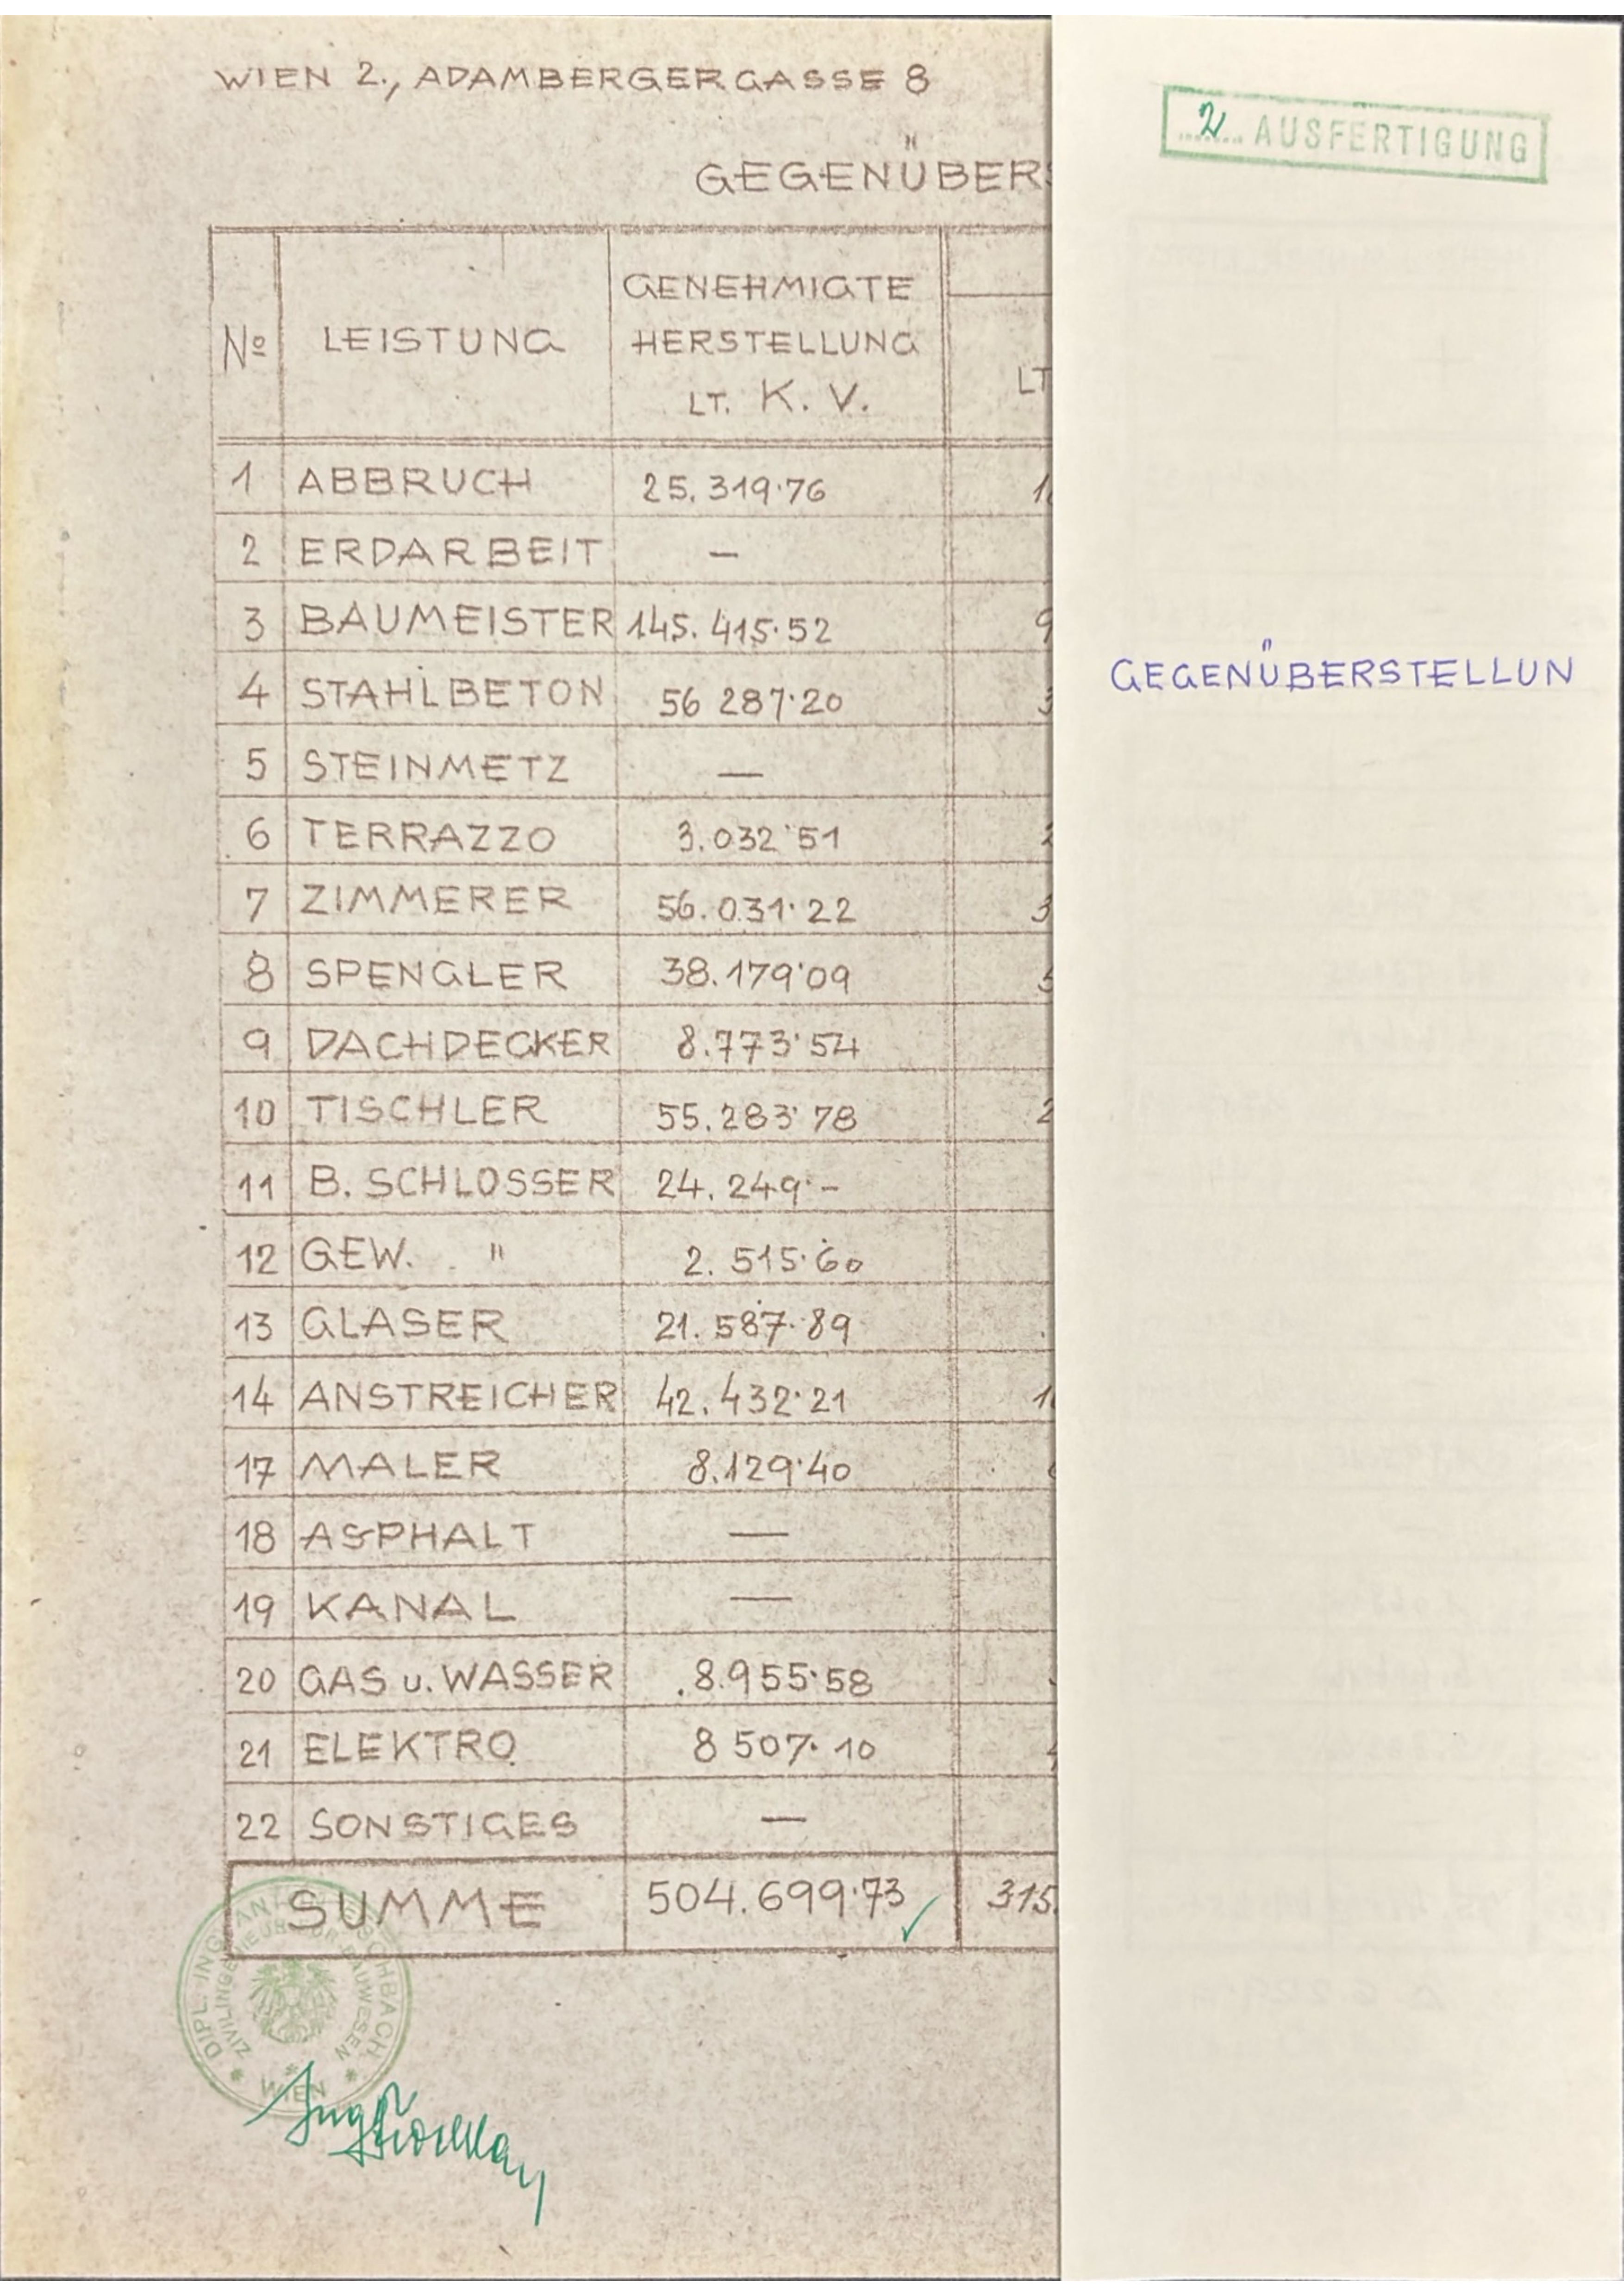 WIEN 2., ADAMBERGERGASSE 8
GEGENÜBERS
2 AUSFERTIGUNG
GEGENÜBERSTELLUN
Nº LEISTUNG GENEHMIGTE HERSTELLUNG LT. K. V. LT
1 ABBRUCH 25.319·76 1
2 ERDARBEIT —
3 BAUMEISTER 145.415·52 9
4 STAHLBETON 56 287·20 3
5 STEINMETZ —
6 TERRAZZO 3.032·51 2
7 ZIMMERER 56.031·22 3
8 SPENGLER 38.179·09 5
9 DACHDECKER 8.773·54
10 TISCHLER 55.283·78 2
11 B. SCHLOSSER 24.249·-
12 GEW. " 2.515·60
13 GLASER 21.587·89
14 ANSTREICHER 42.432·21 1
17 MALER 8.129·40
18 ASPHALT —
19 KANAL —
20 GAS u. WASSER 8.955·58
21 ELEKTRO 8 507·10
22 SONSTIGES —
SUMME 504.699·73 ✓ 315.
DIPL. ING.
ZIVILINGENIEUR FÜR BAUWESEN
WIEN